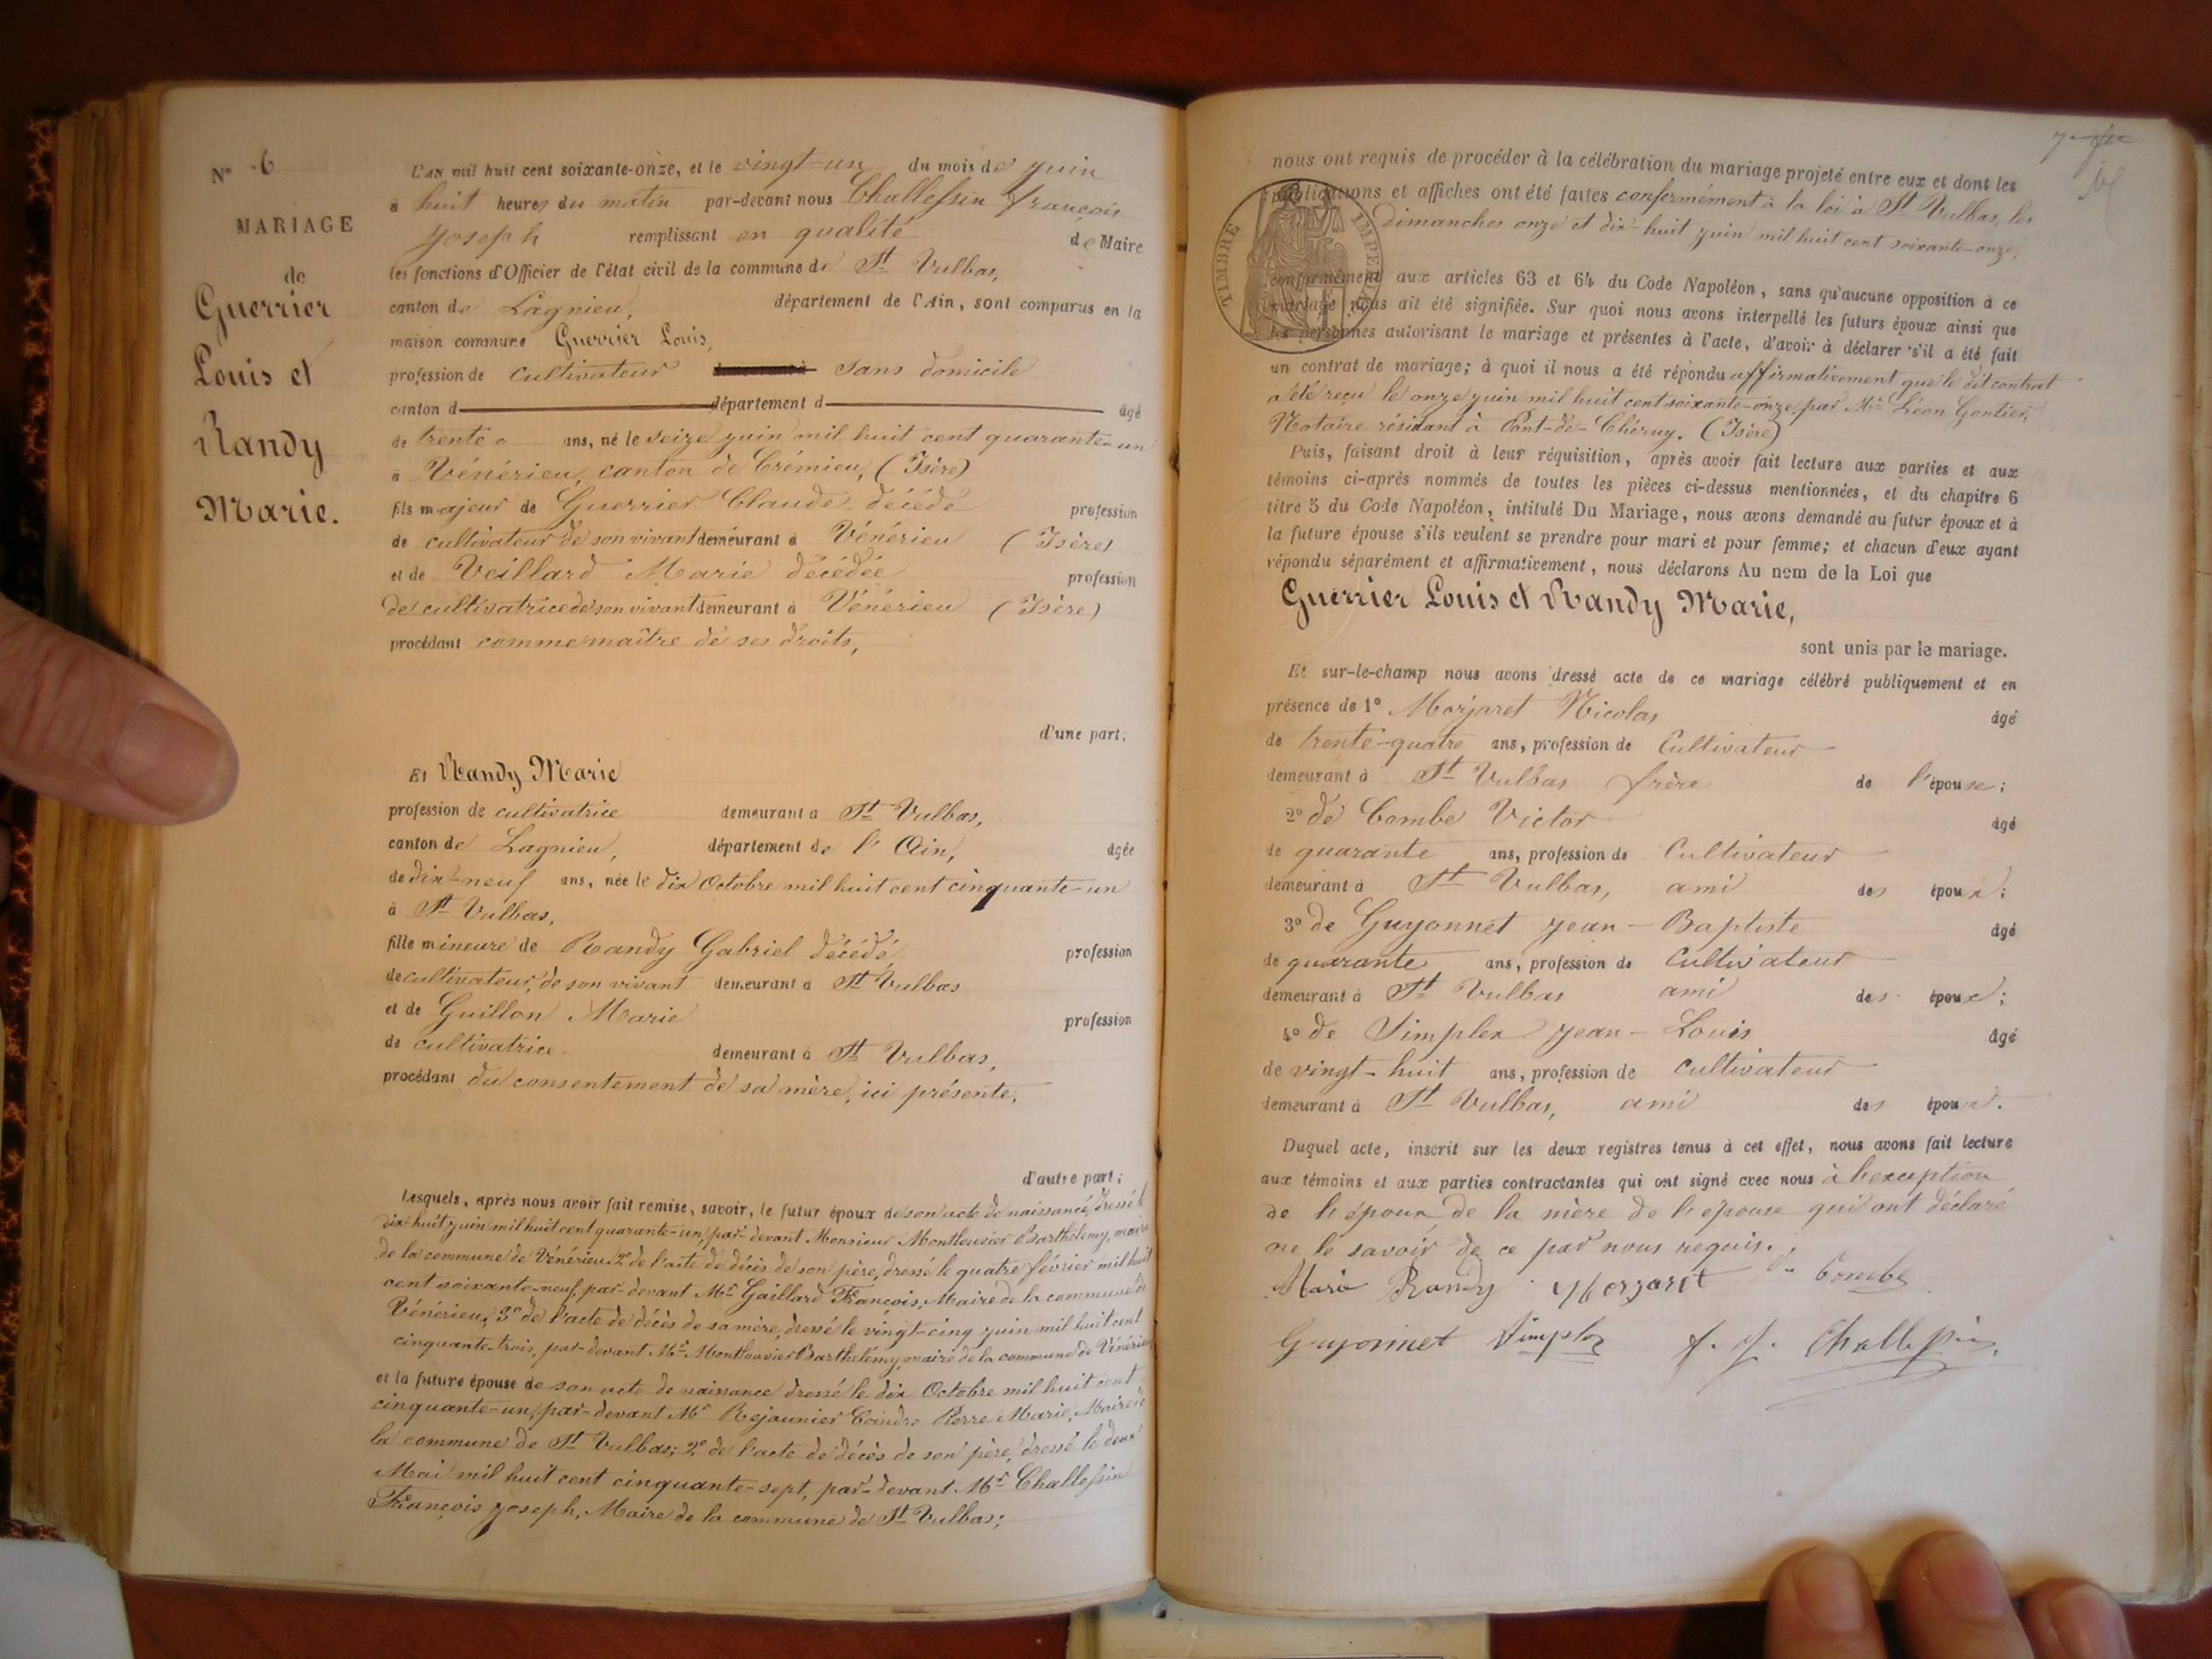 N° 6
MARIAGE
de
Guerrier
Louis et
Randy
Marie.
L'an mil huit cent soixante-onze, et le vingt-un du mois de juin
à huit heures du matin par-devant nous Challessin François
Joseph remplissant en qualité de Maire
les fonctions d'Officier de l'état civil de la commune de St Vulbas,
canton de Lagnieu, département de l'Ain, sont comparus en la
maison commune Guerrier Louis,
profession de cultivateur sans domicile
canton d département d âgé
de trente ans, né le seize juin mil huit cent quarante-un
à Vénérieu, canton de Crémieu, (Isère)
fils majeur de Guerrier Claude décédé profession
de cultivateur de son vivant demeurant à Vénérieu (Isère)
et de Veillard Marie décédée profession
de cultivatrice de son vivant demeurant à Vénérieu (Isère)
procédant comme maître de ses droits,
d'une part;
Et Randy Marie
profession de cultivatrice demeurant à St Vulbas,
canton de Lagnieu, département de l'Ain, âgée
de dix-neuf ans, née le dix Octobre mil huit cent cinquante-un
à St Vulbas,
fille mineure de Randy Gabriel décédé profession
de cultivateur, de son vivant demeurant à St Vulbas
et de Guillon Marie profession
de cultivatrice demeurant à St Vulbas,
procédant du consentement de sa mère, ici présente,
d'autre part;
Lesquels, après nous avoir fait remise, savoir, le futur époux de son acte de naissance, dressé le
dix-huit juin mil huit cent quarante-un, par-devant Monsieur Montlouvier Barthélemy, maire
de la commune de Vénérieu, 2° de l'acte de décès de son père, dressé le quatre février mil huit
cent soixante-neuf, par-devant Mr Gaillard François, Maire de la commune de
Vénérieu, 3° de l'acte de décès de sa mère, dressé le vingt-cinq juin mil huit cent
cinquante-trois, par-devant Mr Montlouvier Barthélémy, maire de la commune de Vénérieu,
et la future épouse de son acte de naissance dressé le dix Octobre mil huit cent
cinquante-un, par-devant Mr Rejaunier Coindre Pierre Marie, Maire de
la commune de St Vulbas; 2° de l'acte de décès de son père, dressé le deux
Mai mil huit cent cinquante-sept, par-devant Mr Challessin
François Joseph, Maire de la commune de St Vulbas;
nous ont requis de procéder à la célébration du mariage projeté entre eux et dont les
publications et affiches ont été faites conformément à la loi à St Vulbas, les
dimanches onze et dix-huit juin mil huit cent soixante-onze,
TIMBRE IMPERIAL
conformément aux articles 63 et 64 du Code Napoléon, sans qu'aucune opposition à ce
mariage nous ait été signifiée. Sur quoi nous avons interpellé les futurs époux ainsi que
les personnes autorisant le mariage et présentes à l'acte, d'avoir à déclarer s'il a été fait
un contrat de mariage; à quoi il nous a été répondu affirmativement que le dit contrat
a été reçu le onze juin mil huit cent soixante-onze, par Me Léon Gontier,
Notaire résidant à Pont-de-Chéruy. (Isère)
Puis, faisant droit à leur réquisition, après avoir fait lecture aux parties et aux
témoins ci-après nommés de toutes les pièces ci-dessus mentionnées, et du chapitre 6
titre 5 du Code Napoléon, intitulé Du Mariage, nous avons demandé au futur époux et à
la future épouse s'ils veulent se prendre pour mari et pour femme; et chacun d'eux ayant
répondu séparément et affirmativement, nous déclarons Au nom de la Loi que
Guerrier Louis et Randy Marie,
sont unis par le mariage.
Et sur-le-champ nous avons dressé acte de ce mariage célébré publiquement et en
présence de 1° Morjaret Nicolas âgé
de trente-quatre ans, profession de Cultivateur
demeurant à St Vulbas frère de l'épouse;
2° de Combe Victor âgé
de quarante ans, profession de Cultivateur
demeurant à St Vulbas, ami des époux;
3° de Guyonnet Jean-Baptiste âgé
de quarante ans, profession de Cultivateur
demeurant à St Vulbas ami des époux;
4° de Simplex Jean-Louis âgé
de vingt-huit ans, profession de cultivateur
demeurant à St Vulbas, ami des époux.
Duquel acte, inscrit sur les deux registres tenus à cet effet, nous avons fait lecture
aux témoins et aux parties contractantes qui ont signé avec nous à l'exception
de l'époux, de la mère de l'épouse qui ont déclaré
ne le savoir de ce par nous requis.
Marie Randy Morjaret Combe
Guyonnet Simplex f. J. Challessin